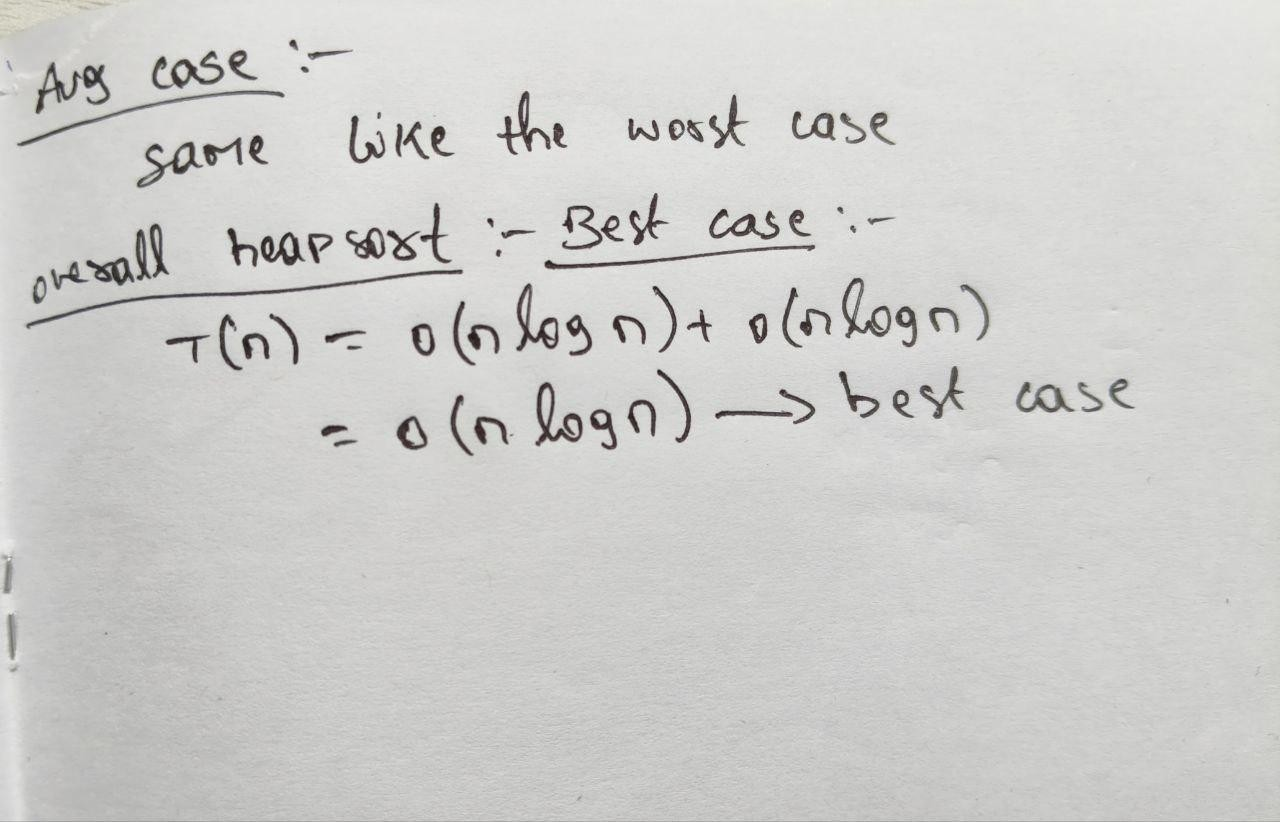 Avg case :-
same like the worst case
overall heapsort :- Best case :-
T(n) = O(n log n) + O(n log n)
= O(n log n) → best case